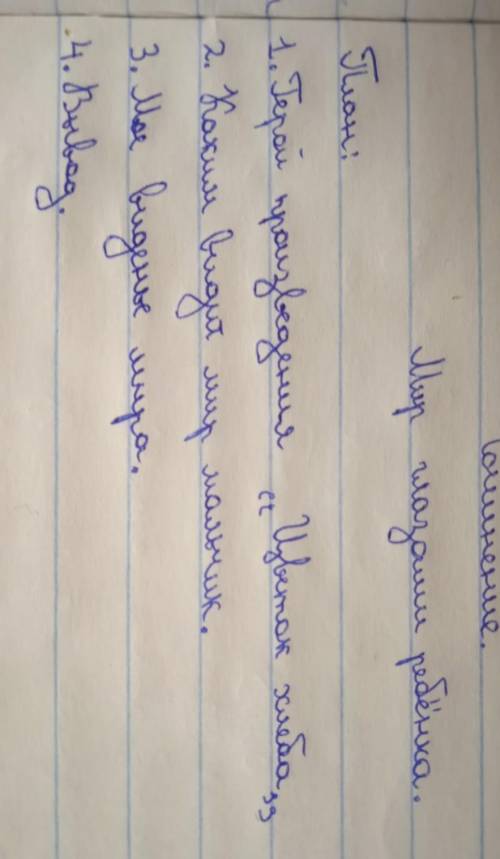 Сочинение.
Мир глазами ребёнка.
План:
1. Герой произведения „Цветок хлеба„
2. Каким видит мир мальчик.
3. Мое виденье мира.
4. Вывод.